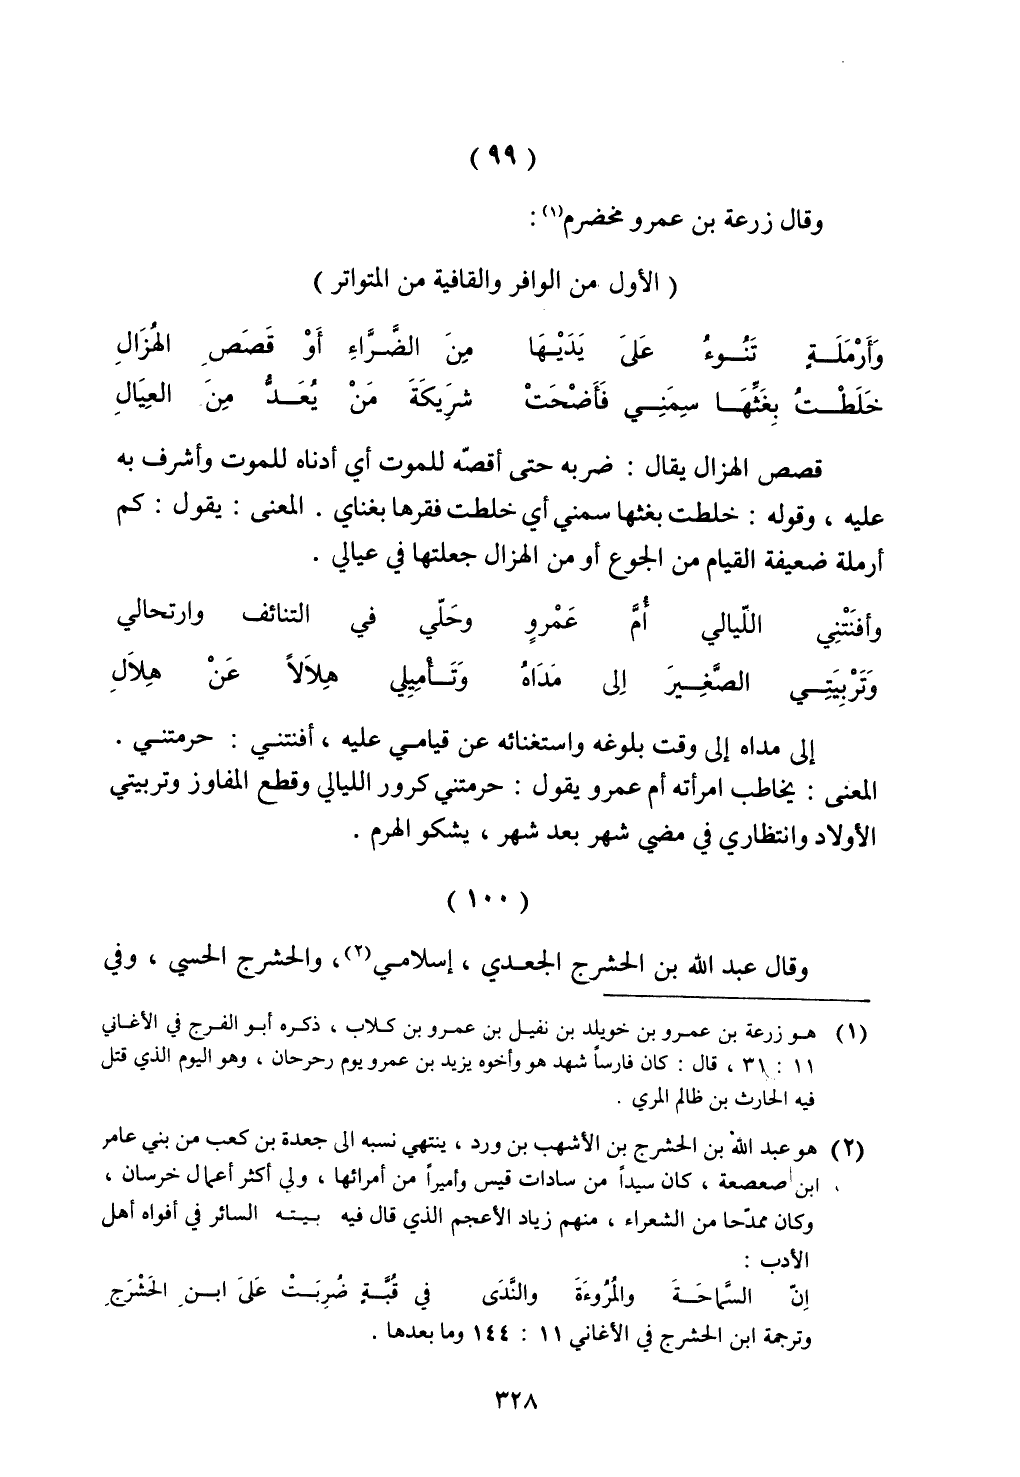 ( ٩٩ )
وقال زرعة بن عمرو مخضرم(١) :
( الأول من الوافر والقافية من المتواتر )
وَأَرْمَلَـــةٍ تَنُـــوءُ عَلىَ يَدَيْـهَا مِنَ الضَّرَّاءِ أَوْ قَصَصِ الهُزَالِ
خَلَطْـــتُ بِغَثِّهَـــا سِمَنِـــي فَأَضْحَتْ شَرِيكَةَ مَنْ يُعَـــدُّ مِنَ العِيَالِ
قصص الهزال يقال : ضربه حتى أقصّه للموت أي أدناه للموت وأشرف به
عليه ، وقوله : خلطت بغثها سمني أي خلطت فقرها بغناي . المعنى : يقول : كم
أرملة ضعيفة القيام من الجوع أو من الهزال جعلتها في عيالي .
وأفنَتْنِي اللّيالي أُمَّ عَمْروٍ وحَلّي في التنائف وارتحالي
وَتَرْبِيَتِـــي الصَّغِيـــرَ إلى مَدَاهُ وَتَـــأْمِيلِي هِلاَلاً عَنْ هِلاَلِ
إلى مداه إلى وقت بلوغه واستغنائه عن قيامـي عليه ، أفنتنـي : حرمتنـي .
المعنى : يخاطب امرأته أم عمرو يقول : حرمتني كرور الليالي وقطع المفاوز وتربيتي
الأولاد وانتظاري في مضي شهر بعد شهر ، يشكو الهرم .
( ١٠٠ )
وقال عبد الله بن الحشرج الجعـدي ، إسلامـي(٢)، والحشرج الحسي ، وفي
(١) هـو زرعة بن عمـرو بن خويلد بن نفيـل بن عمـرو بن كـلاب ، ذكـره أبـو الفـرج في الأغـاني
١١ : ٣١ ، قال : كان فارساً شهد هو وأخوه يزيد بن عمرو يوم رحرحان ، وهو اليوم الذي قتل
فيه الحارث بن ظالم المري .
(٢) هو عبد الله بن الحشرج بن الأشهب بن ورد ، ينتهي نسبه الى جعدة بن كعب من بني عامر
ابن صعصعة ، كان سيداً من سادات قيس وأميراً من أمرائها ، ولي أكثر أعمال خرسان ،
وكان ممدّحا من الشعراء ، منهم زياد الأعجم الذي قال فيه بـيـتـه السائر في أفواه أهل
الأدب :
إنّ السَّماحَـــةَ والمُرُوءَةَ والنَّدَى في قُبَّةٍ ضُرِبَـــتْ عَلىَ ابـــنِ الحَشْرَجِ
وترجمة ابن الحشرج في الأغاني ١١ : ١٤٤ وما بعدها .
٣٢٨